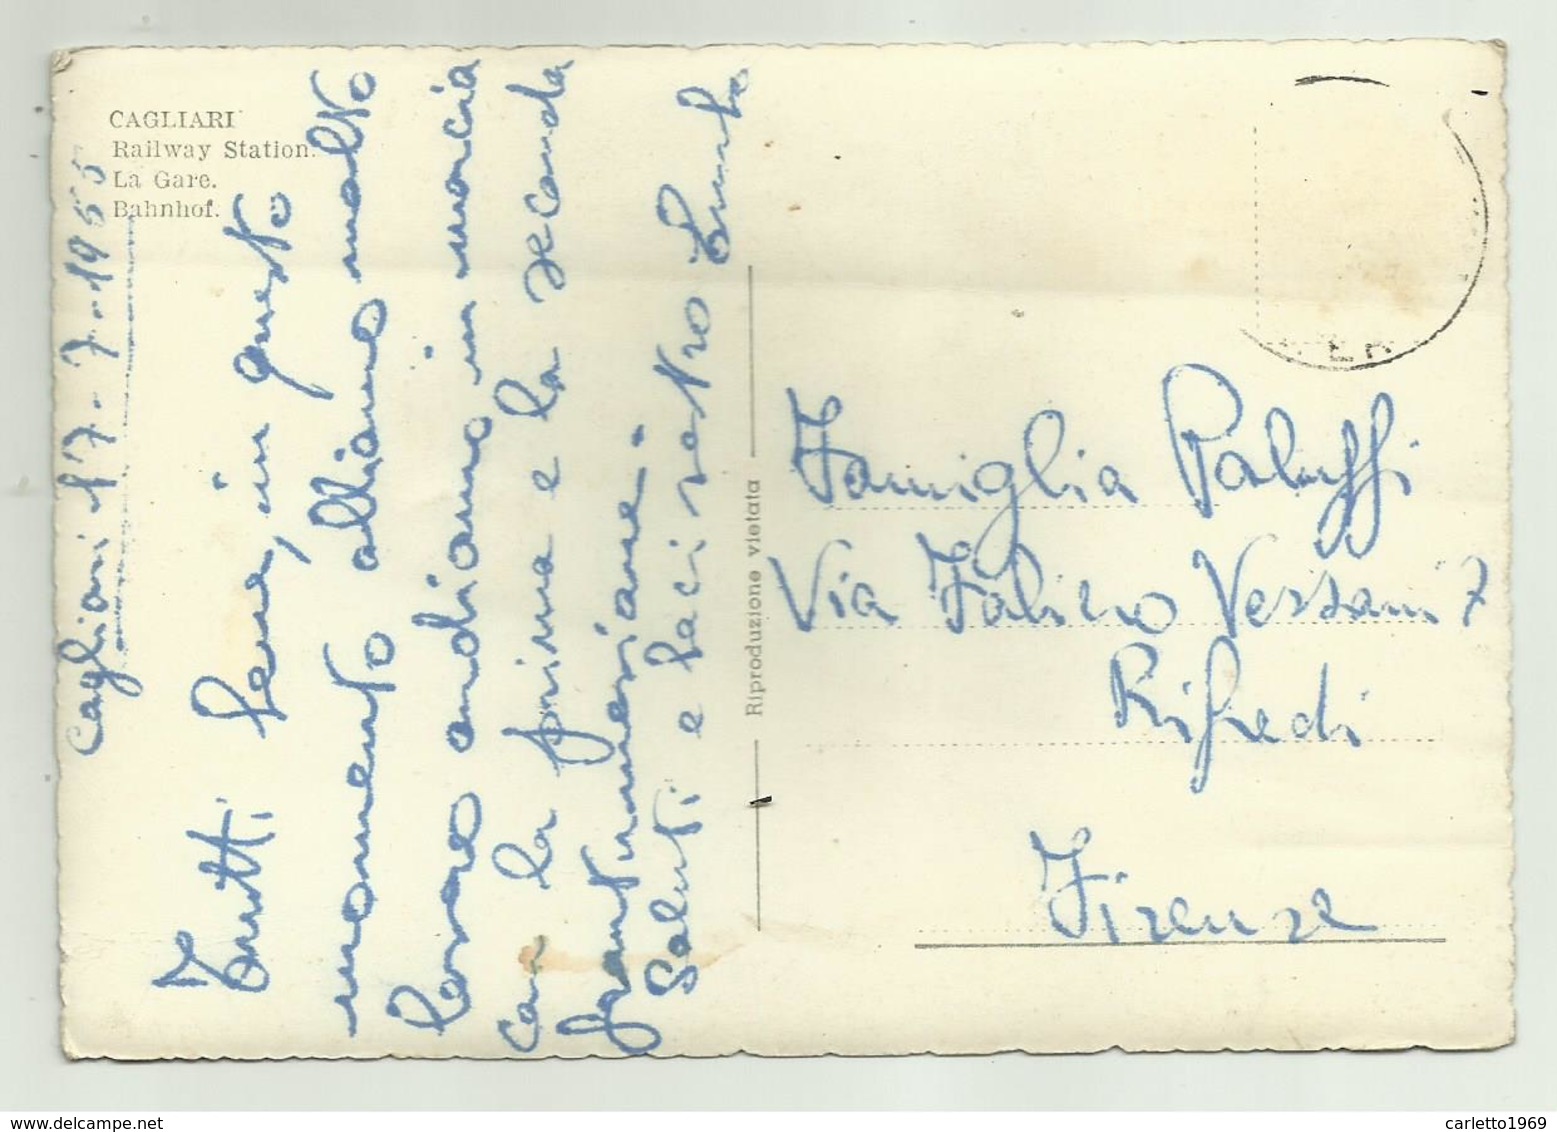 CAGLIARI
Railway Station.
La Gare.
Bahnhof.
Cagliari 17-7-1955
Tutti bene, in questo
momento abbiamo molto
andiamo in marcia
con la prima e la seconda
Saluti e baci vostro
Riproduzione vietata
Famiglia Paluffi
Via Fabizio Versani 7
Rifredi
Firenze
delcampe.net
carletto1969